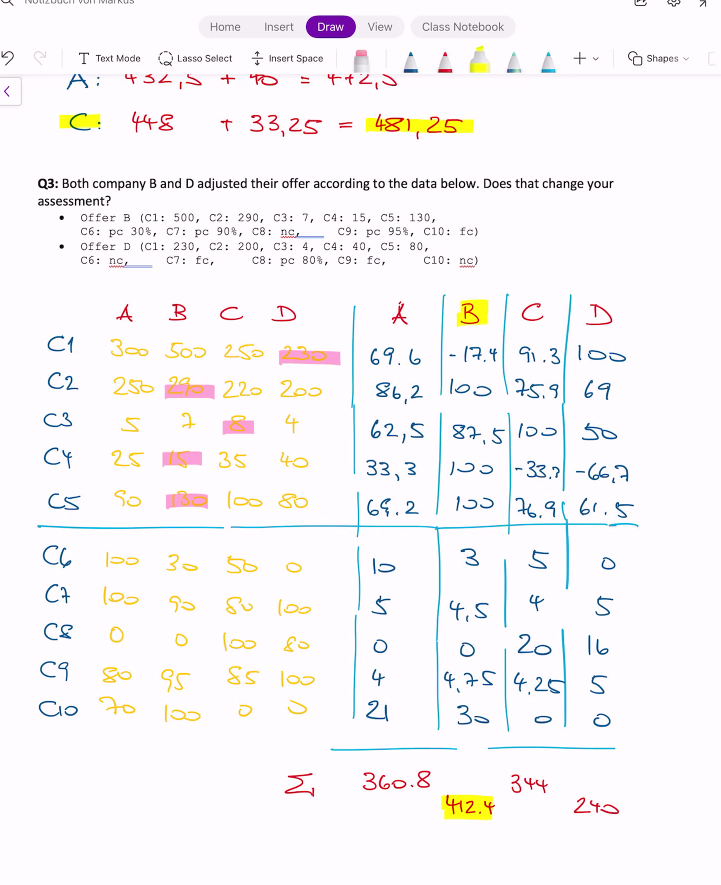 Notizbuch von Markus
Home Insert Draw View Class Notebook
T Text Mode Lasso Select Insert Space Shapes
A: 432,5 + 40 = 472,5
C: 448 + 33,25 = 481,25
Q3: Both company B and D adjusted their offer according to the data below. Does that change your
assessment?
• Offer B (C1: 500, C2: 290, C3: 7, C4: 15, C5: 130,
C6: pc 30%, C7: pc 90%, C8: nc, C9: pc 95%, C10: fc)
• Offer D (C1: 230, C2: 200, C3: 4, C4: 40, C5: 80,
C6: nc, C7: fc, C8: pc 80%, C9: fc, C10: nc)
A B C D A B C D
C1 300 500 250 230 69.6 -17.4 91.3 100
C2 250 290 220 200 86,2 100 75.9 69
C3 5 7 8 4 62,5 87,5 100 50
C4 25 15 35 40 33,3 100 -33.3 -66,7
C5 90 130 100 80 69.2 100 76.9 61.5
C6 100 30 50 0 10 3 5 0
C7 100 90 80 100 5 4,5 4 5
C8 0 0 100 80 0 0 20 16
C9 80 95 85 100 4 4,75 4,25 5
C10 70 100 0 0 21 30 0 0
Σ 360.8 344
412.4 240